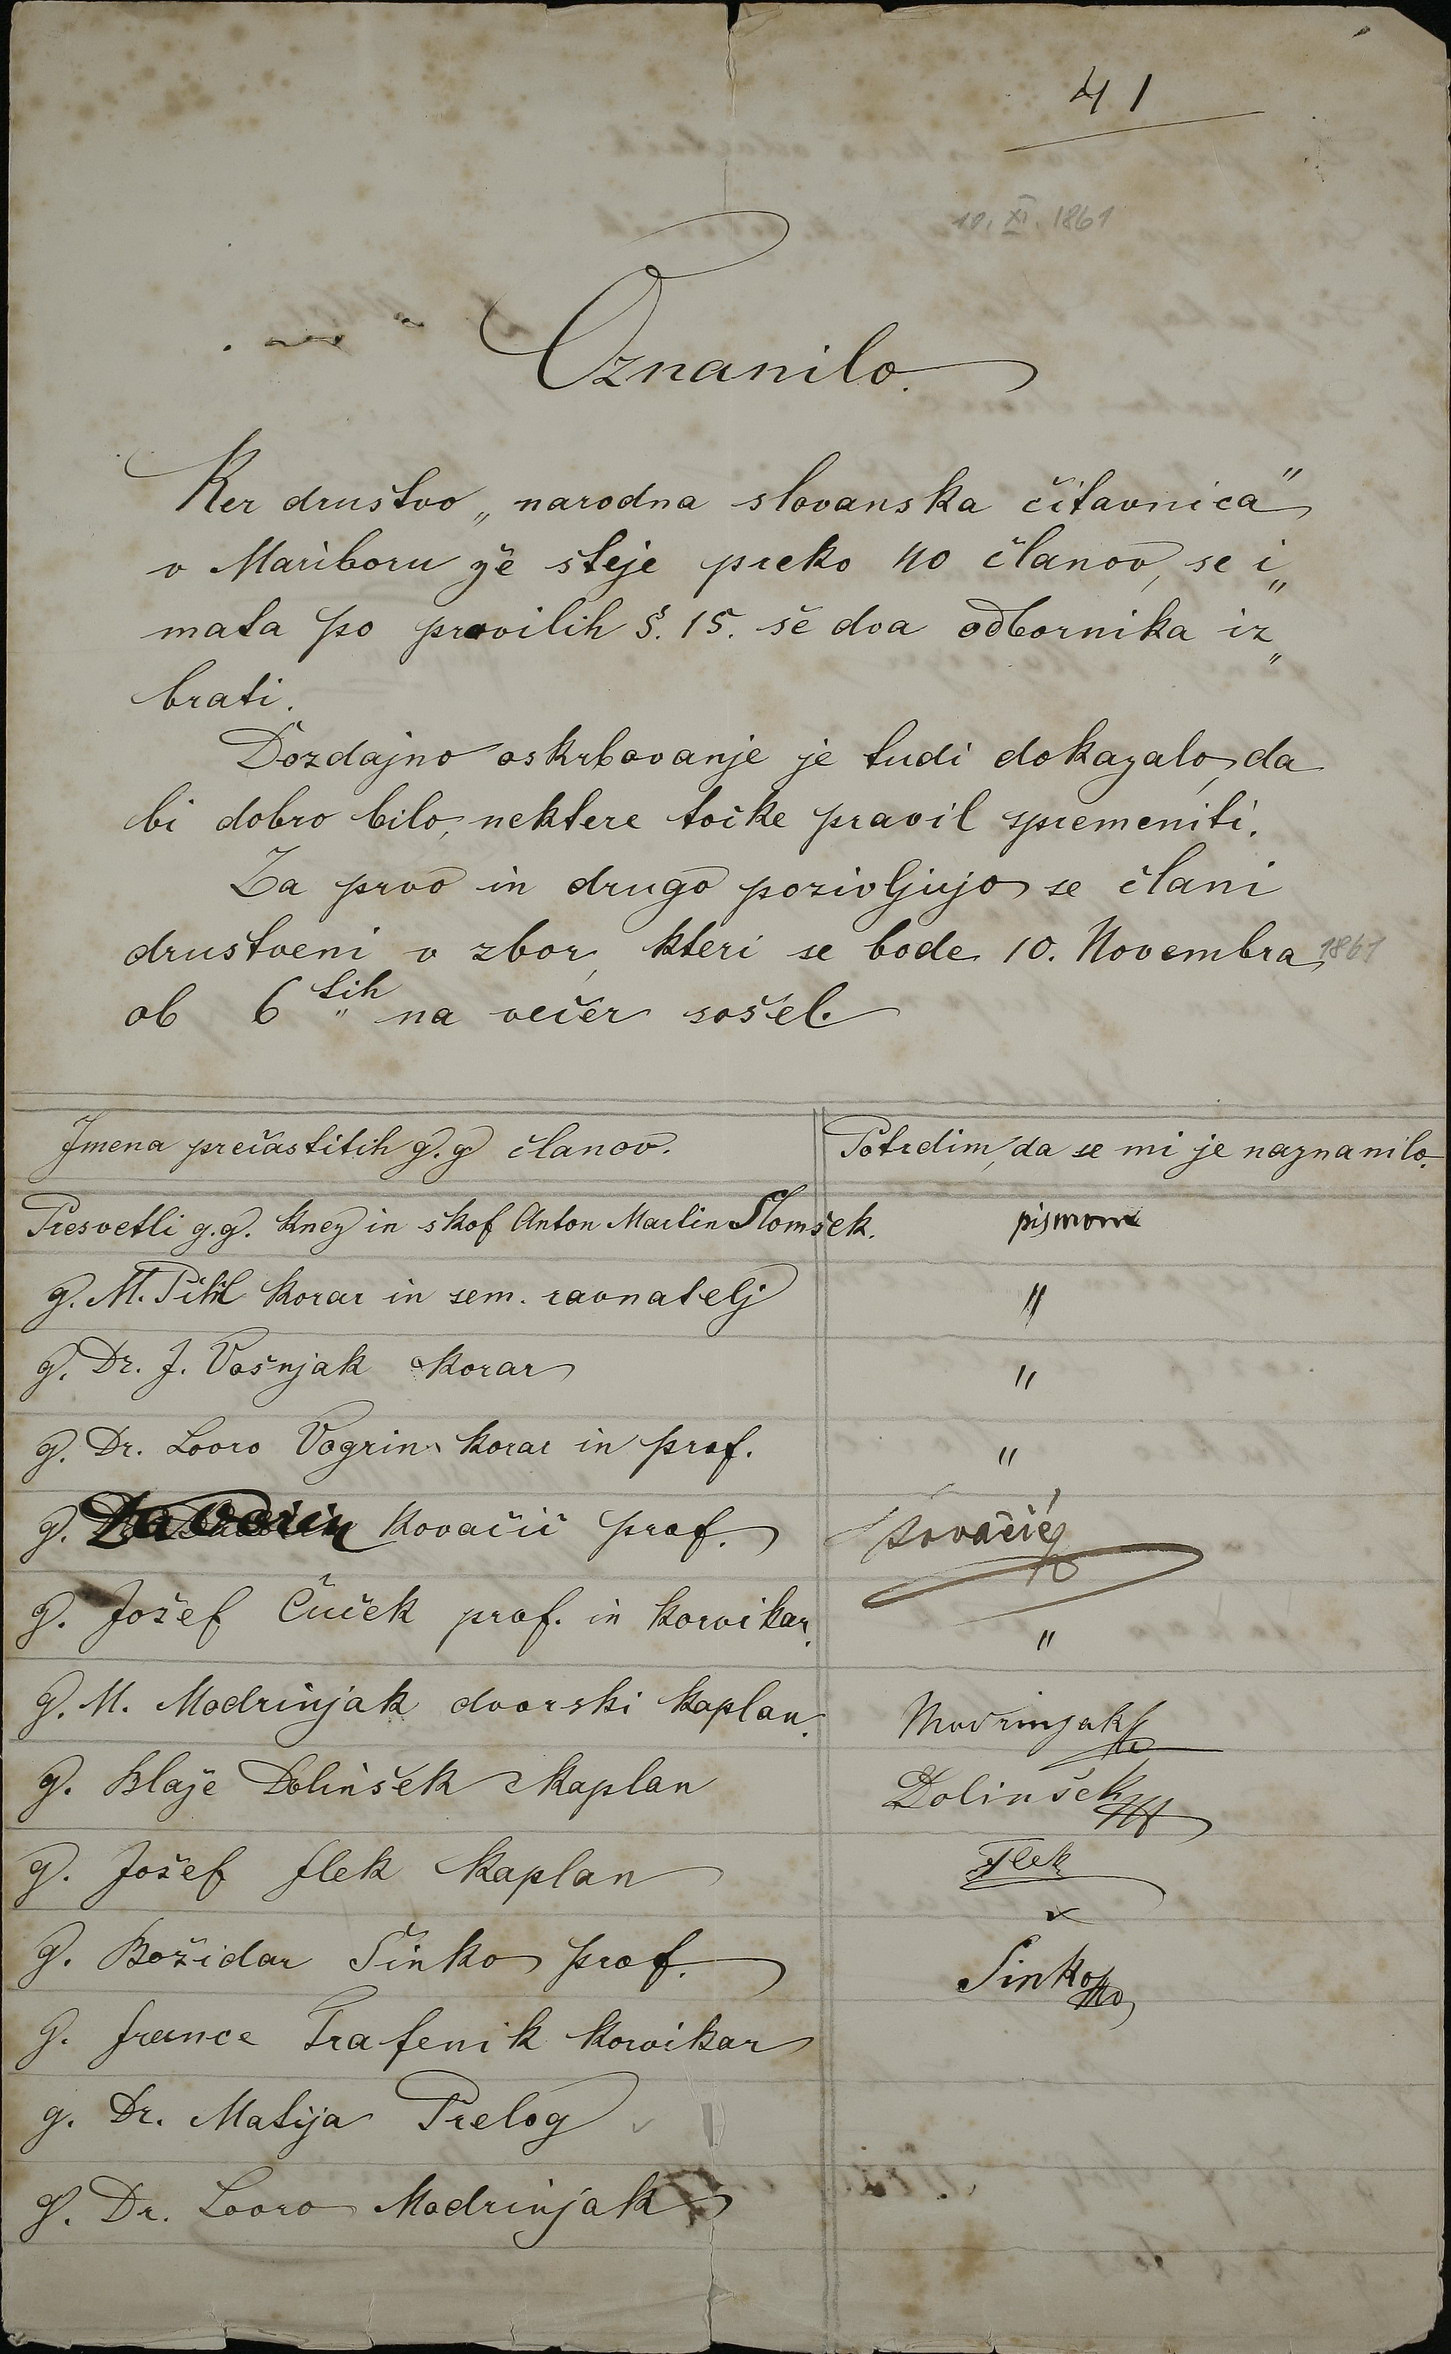 41
10. XI. 1861
Oznanilo.
Ker društvo „narodna slovanska čitavnica"
v Mariboru že šteje preko 40 članov, se i„
mata po pravilih §. 15. še dva odbornika iz„
brati.
Dozdajno oskrbovanje je tudi dokazalo, da
bi dobro bilo, nektere točke pravil spremeniti.
Za prvo in drugo pozivljujo se člani
društveni v zbor, kteri se bode 10. Novembra 1861
ob 6 tih na večer sošel.
Jmena prečastitih g. g članov. Potrdim, da se mi je naznanilo.
Presvetli g.g. knez in škof Anton Martin Slomšek. pismom
g. M. Pikl korar in sem. ravnatelj "
g. Dr. J. Vošnjak korar "
g. Dr. Lovro Vogrin korar in prof. "
g. Davorin Kovačič prof. Kovačič
g. Jožef Čuček prof. in korvikar. "
g. M. Modrinjak dvorski kaplan. Modrinjak
g. Blaže Dolinšek kaplan Dolinšek
g. Jožef Flek kaplan Flek
g. Božidar Šinko prof. Sinko
g. France Trafenik korvikar
g. Dr. Matija Prelog
g. Dr. Lovro Modrinjak